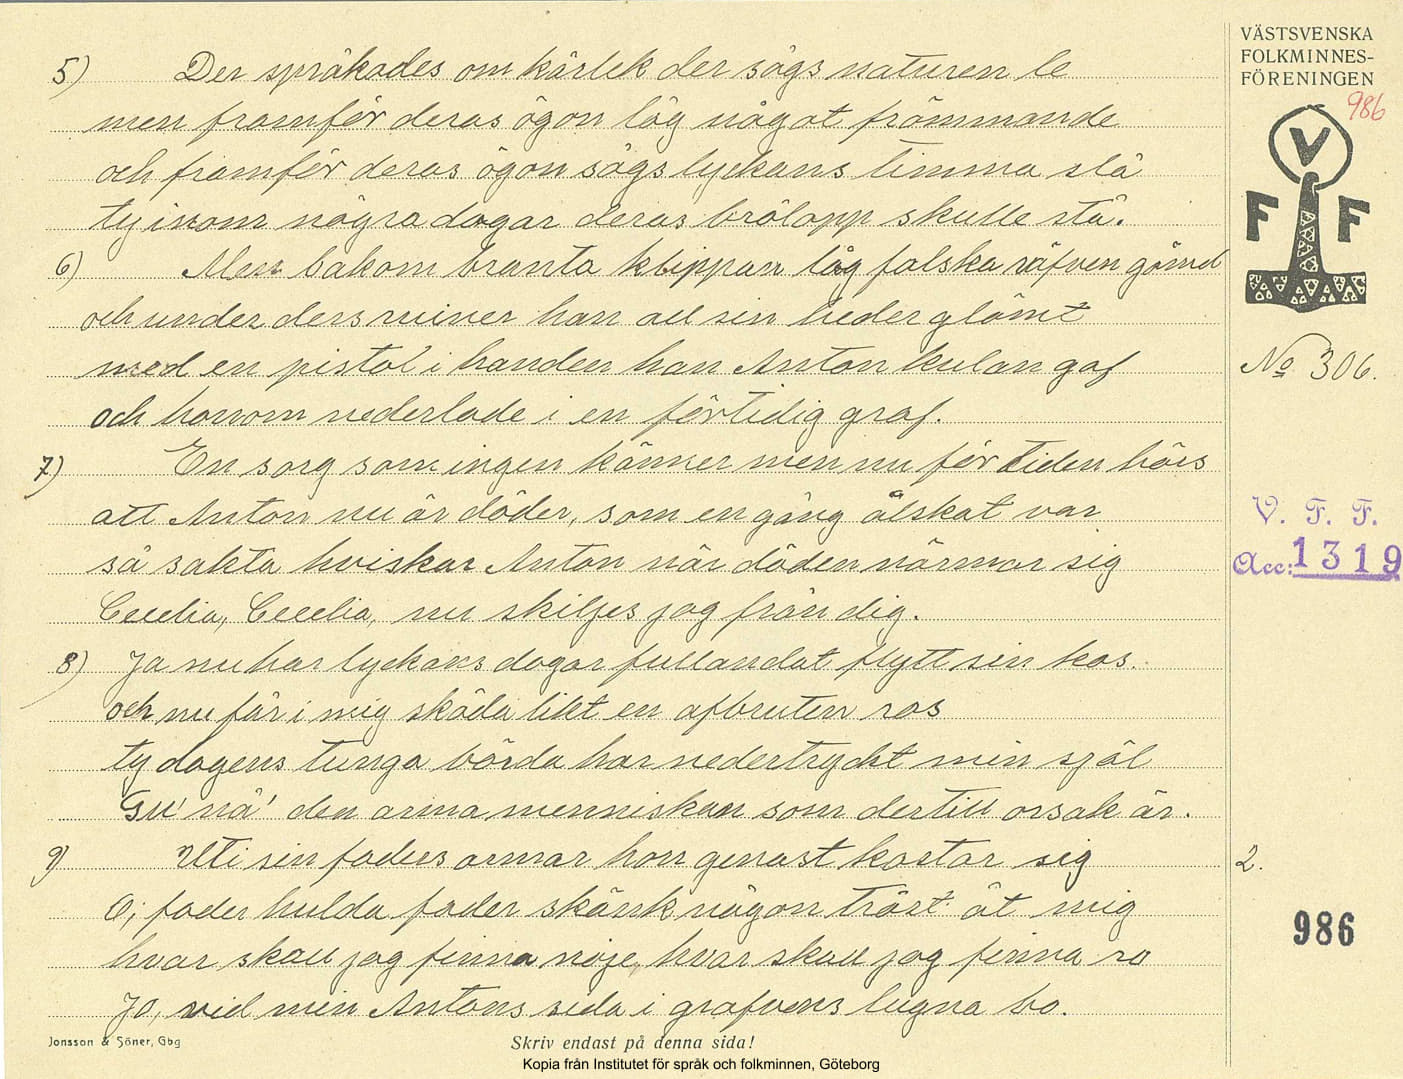 VÄSTSVENSKA
FOLKMINNES-
FÖRENINGEN
986
V
F F
No 306.
V. F. F.
Acc: 1319
2.
986
5) Der språkades om kärlek der sågs naturen le
men framför deras ögon låg något främmande
och framför deras ögon sågs lyckans timma slå
ty inom några dagar deras brölopp skulle stå.
6) Men bakom branta klippan låg falska räfven gömd
och under dess ruiner han all sin heder glömt
med en pistol i handen han Anton kulan gaf
och honom nederlade i en förtidig graf.
7) En sorg som ingen känner men nu för tiden hörs
att Anton nu är döder, som en gång älskat var
så sakta hviskar Anton när döden närmar sig
Cecelia, Cecelia, nu skiljes jag från dig.
8) Ja nu har lyckans dagar fullandat flytt sin kos.
och nu får i mig skåda likt en afbruten ros
ty dagens tunga börda har nedertryckt min själ
Gu' nå' den arma menniskan som dertill orsak är.
9) Uti sin faders armar hon genast kastar sig
O, fader hulda fader skänk någon tröst åt mig
hvar skall jag finna nöje, hvar skall jag finna ro
Jo, vid min Antons sida i grafvens lugna bo.
Jonsson & Söner, Gbg
Skriv endast på denna sida!
Kopia från Institutet för språk och folkminnen, Göteborg